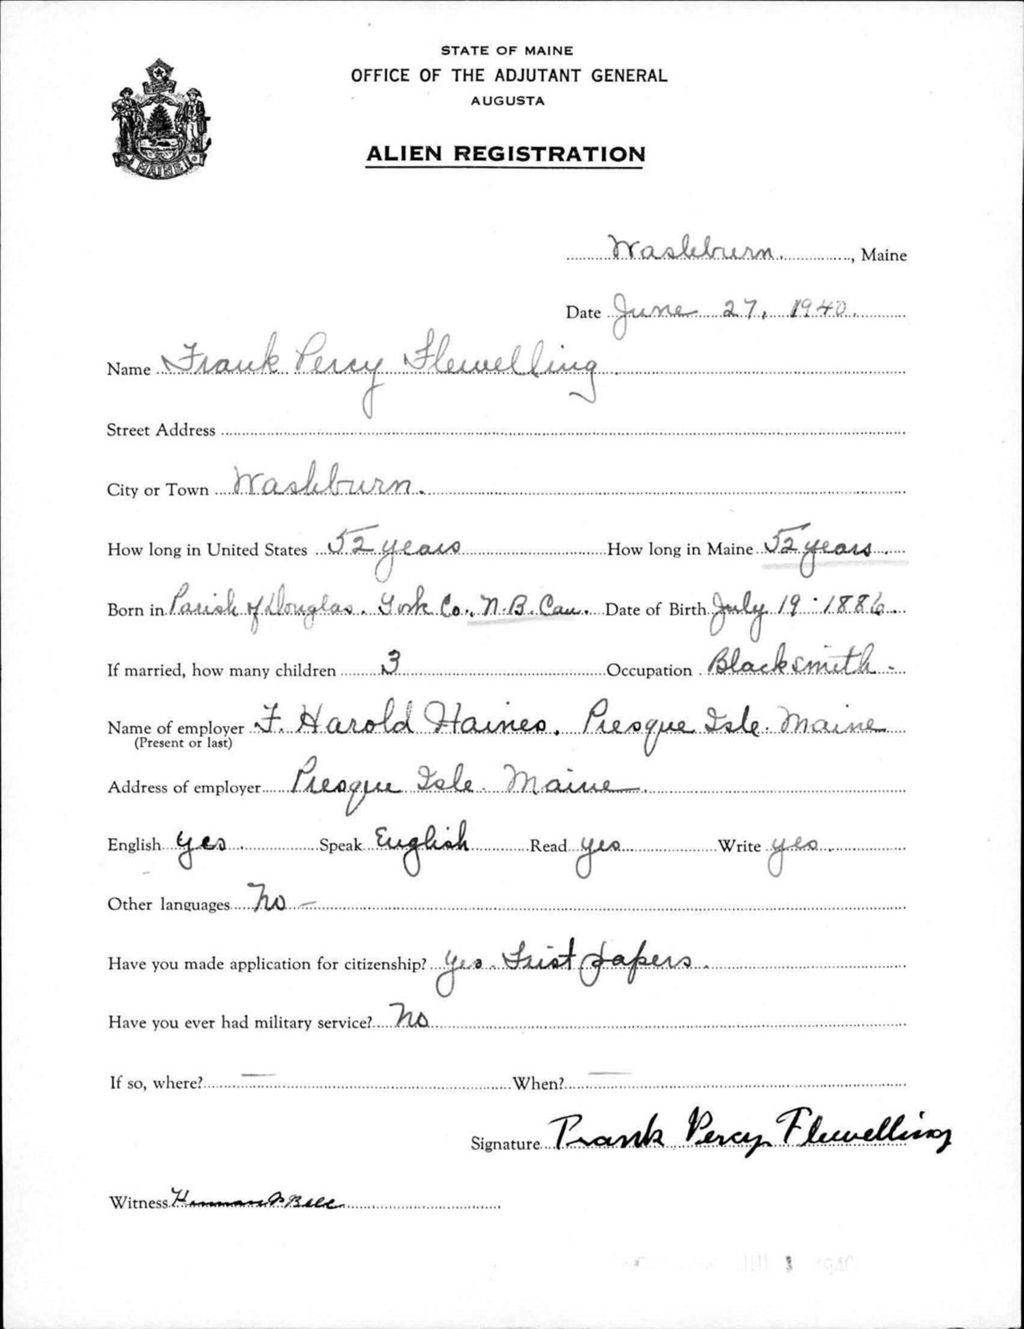 STATE OF MAINE
OFFICE OF THE ADJUTANT GENERAL
AUGUSTA
ALIEN REGISTRATION
MAINE
Washburn, Maine
Date June 27, 1940.
Name Frank Percy Flewelling.
Street Address
City or Town Washburn.
How long in United States 52 years How long in Maine 52 years
Born in Parish of Douglas. York Co., N.B. Can. Date of Birth July 19 - 1886
If married, how many children 3 Occupation Blacksmith -
Name of employer F. Harold Haines. Presque Isle. Maine
(Present or last)
Address of employer Presque Isle. Maine.
English yes. Speak English Read yes Write yes.
Other languages No -
Have you made application for citizenship? yes. First papers.
Have you ever had military service? No
If so, where? — When? —
Signature Frank Percy Flewelling
Witness Herman Bell